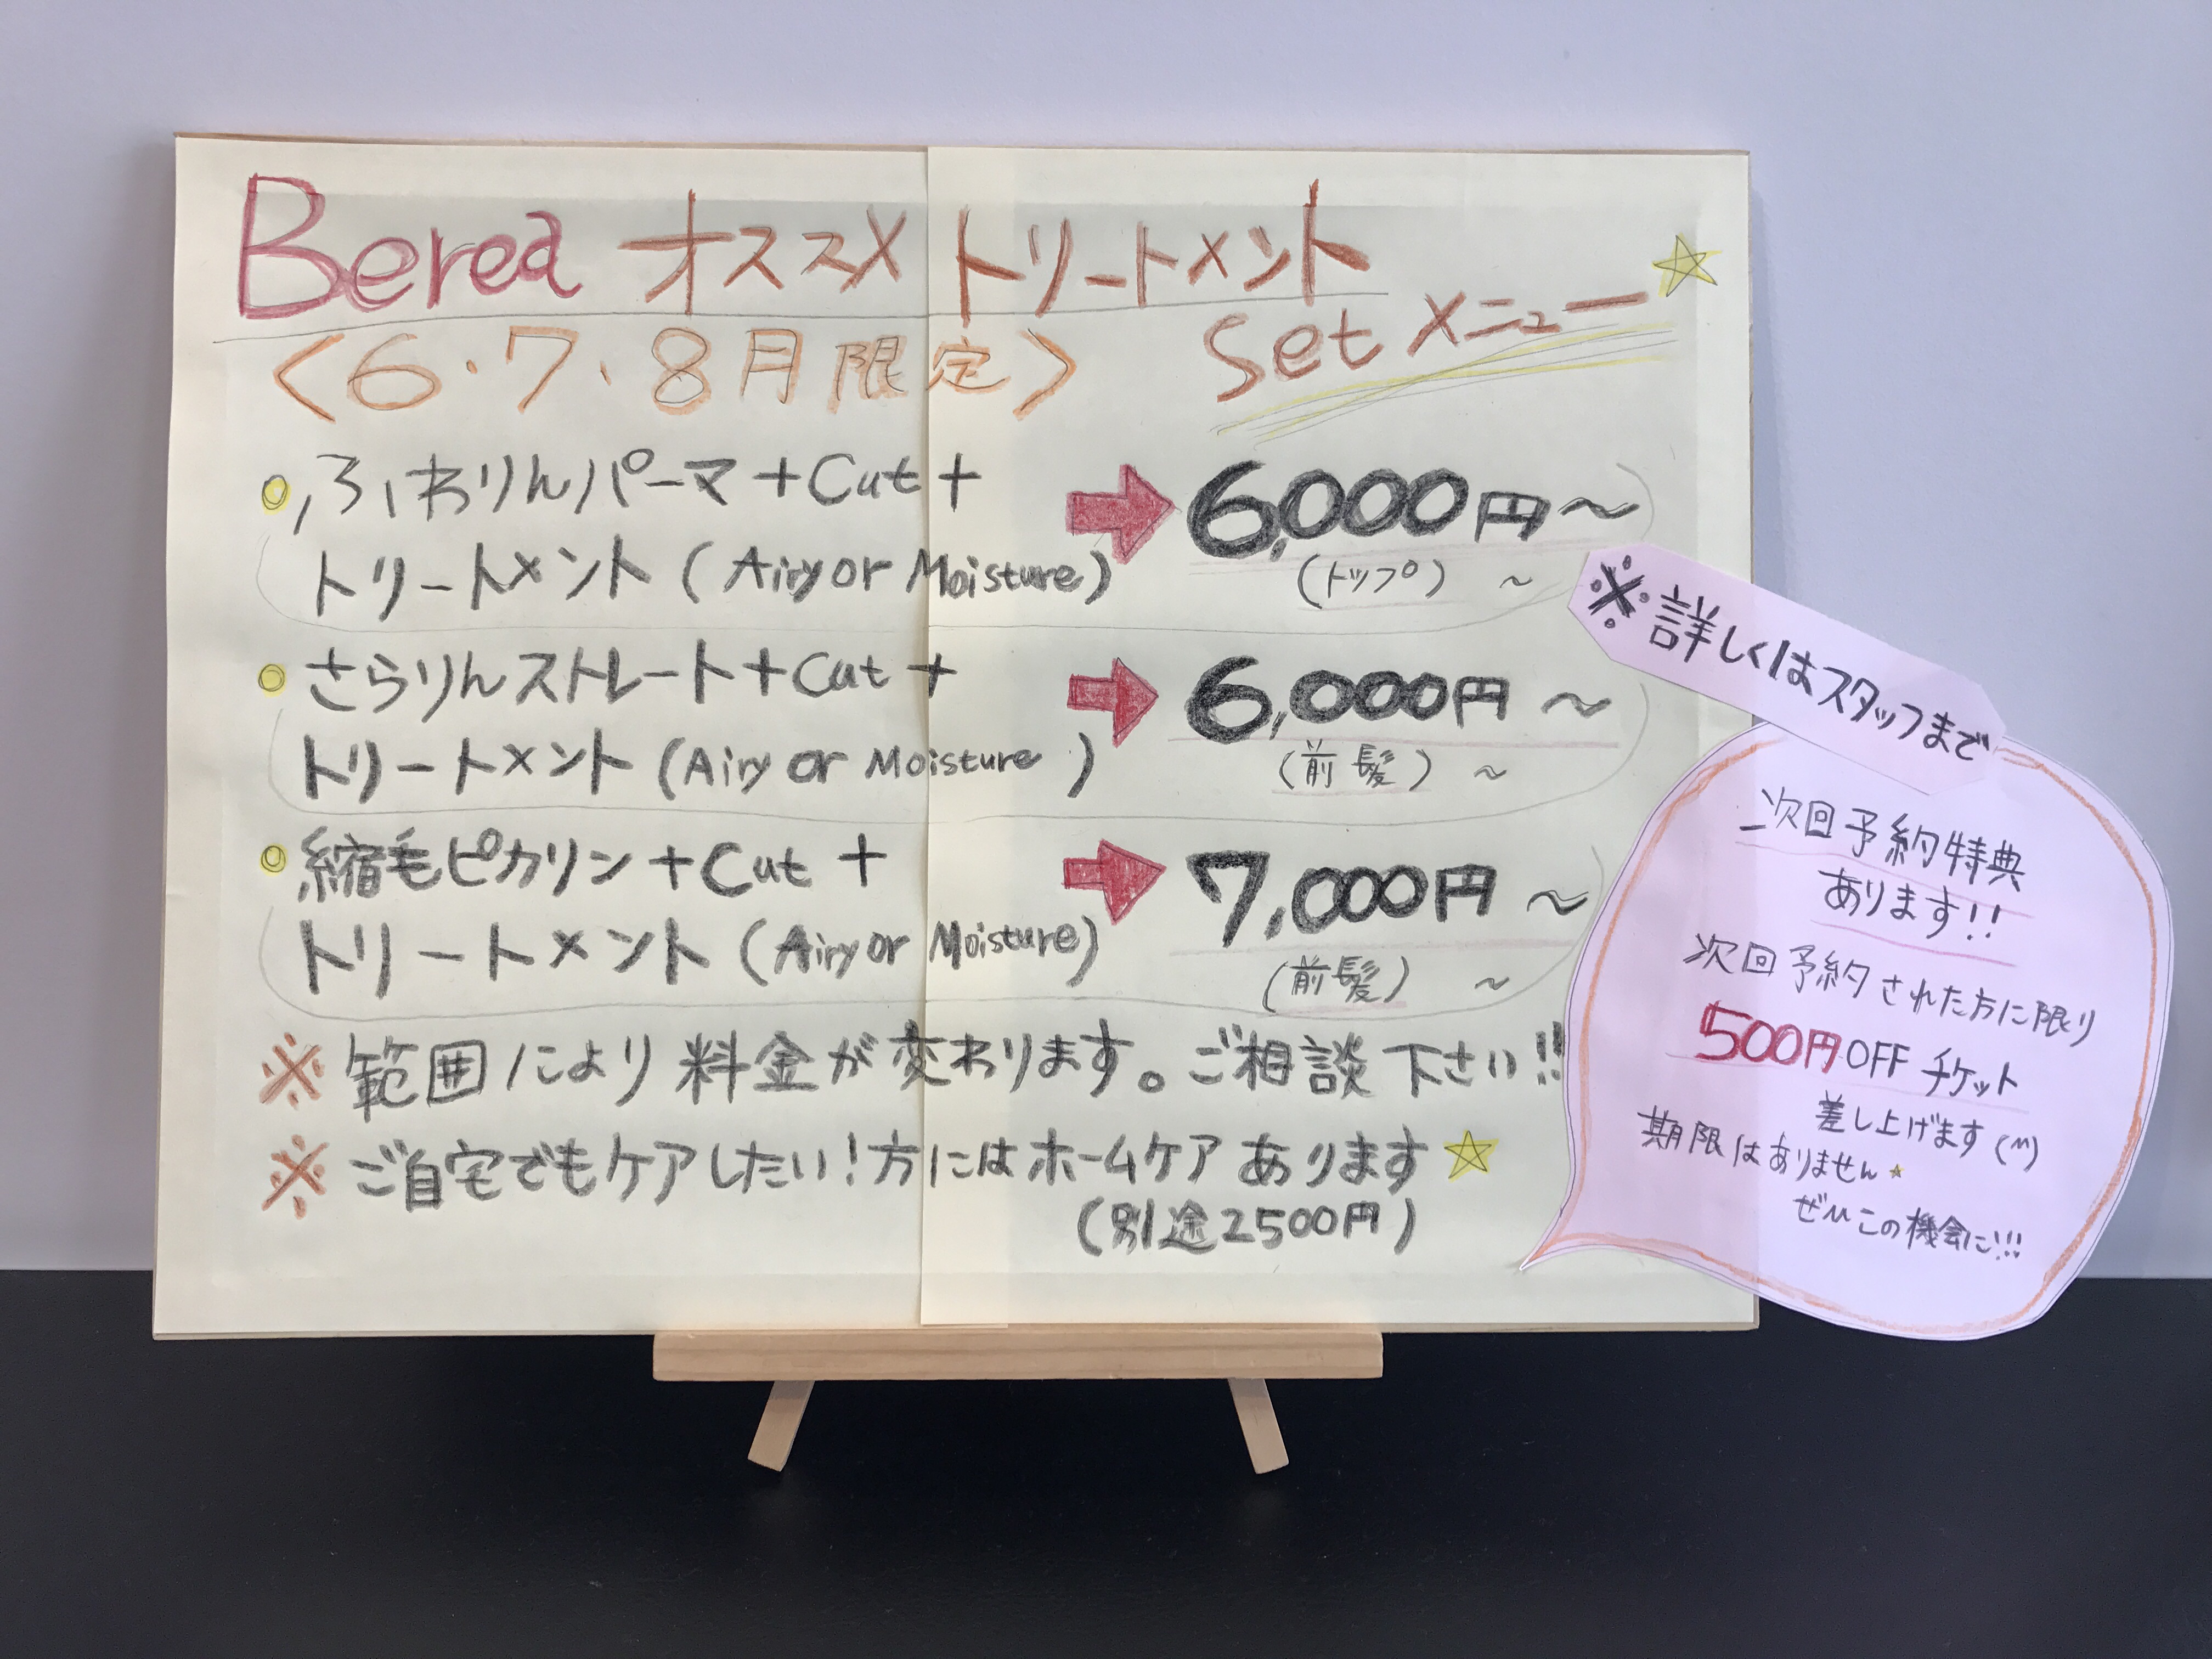 Berea オススメ トリートメント
Set メニュー
<6・7・8月限定>
ふわりんパーマ+Cut+
トリートメント(Airy or Moisture)
6,000円〜
(トップ) 〜
さらりんストレート+Cut+
トリートメント(Airy or Moisture)
6,000円〜
(前髪) 〜
縮毛ピカリン+Cut+
トリートメント(Airy or Moisture)
7,000円〜
(前髪) 〜
※範囲により料金が変わります。ご相談下さい!!
※ご自宅でもケアしたい!方にはホームケアあります☆
(別途2500円)
※詳しくはスタッフまで
次回予約特典
あります!!
次回予約された方に限り
500円OFFチケット
差し上げます(^^)
期限はありません☆
ぜひこの機会に!!!